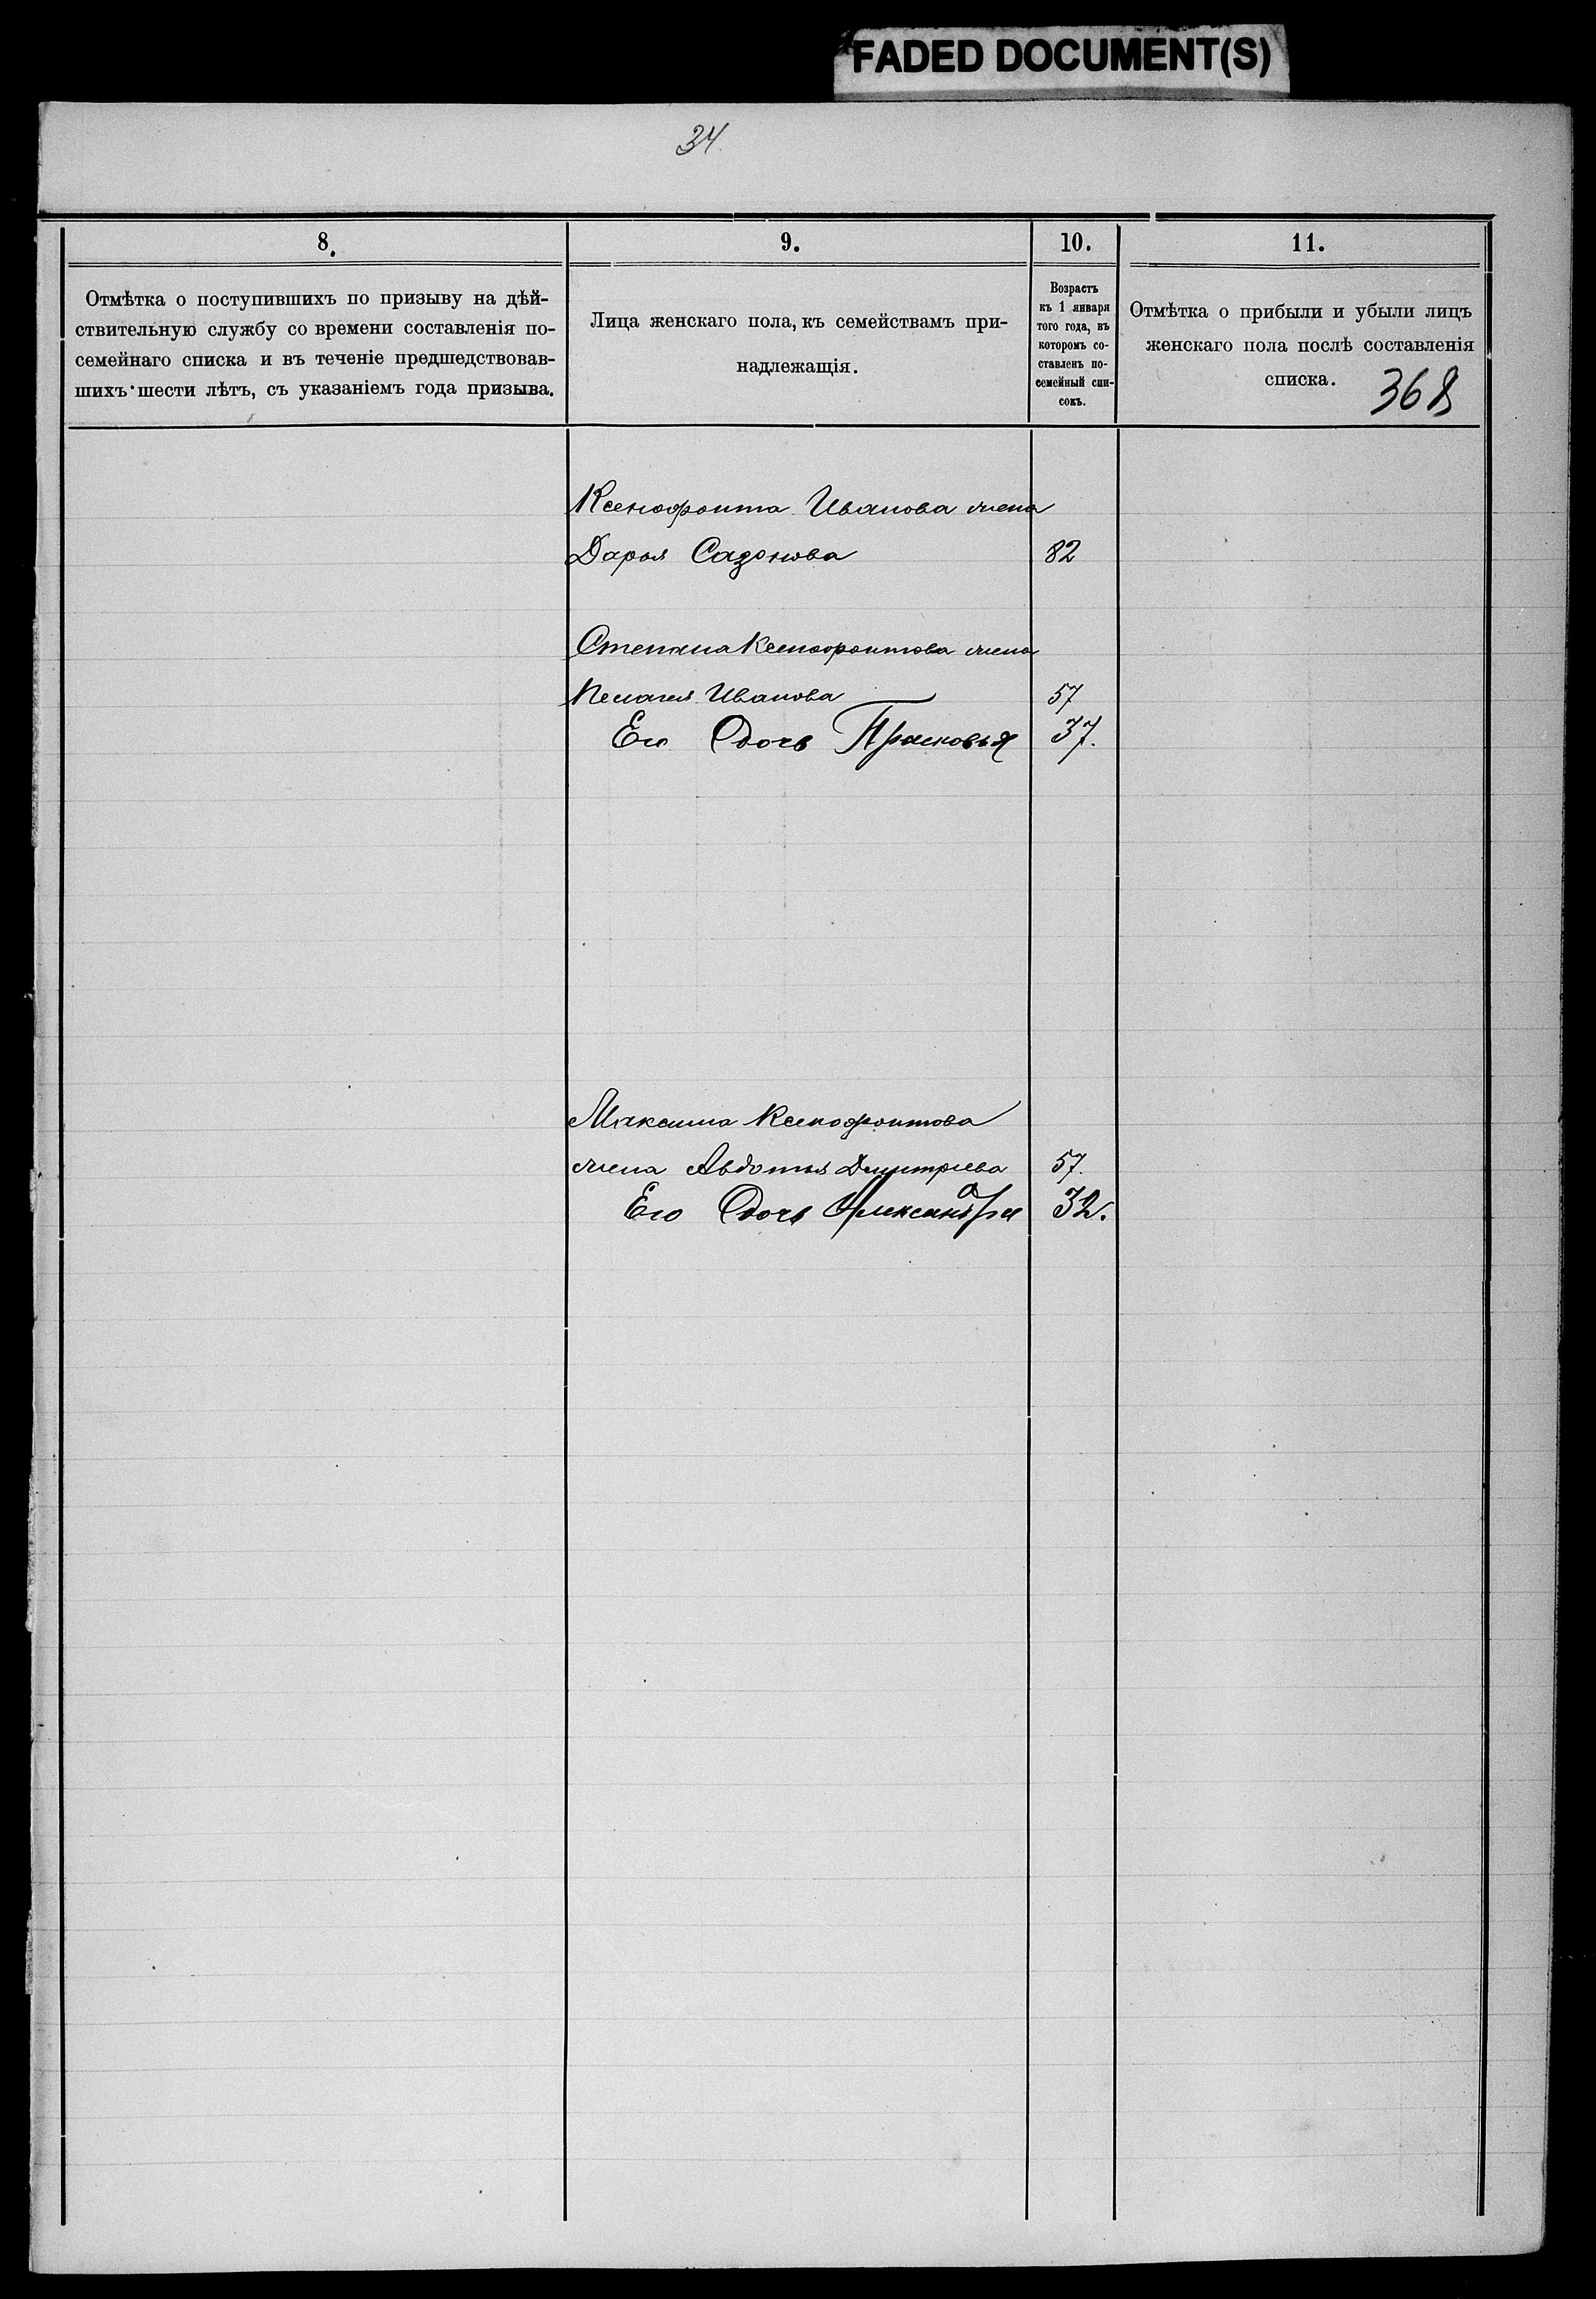 FADED DOCUMENT(S)
34.
8.
Отмѣтка о поступившихъ по призыву на дѣй-
ствительную службу со времени составленія по-
семейнаго списка и въ теченіе предшедствовав-
шихъ шести лѣтъ, съ указаніемъ года призыва.
9.
Лица женскаго пола, къ семействамъ при-
надлежащія.
10.
Возрастъ
къ 1 января
того года, въ
которомъ со-
ставленъ по-
семейный спи-
сокъ.
11.
Отмѣтка о прибыли и убыли лицъ
женскаго пола послѣ составленія
списка.
368
Ксенофонта Иванова жена
Дарья Сазонова 82
Степана Ксенофонтова жена
Пелагея Иванова 57
Его Дочь Прасковья 37.
Максима Ксенофонтова
жена Авдотья Дмитріева 57.
Его Дочь Александра 32.